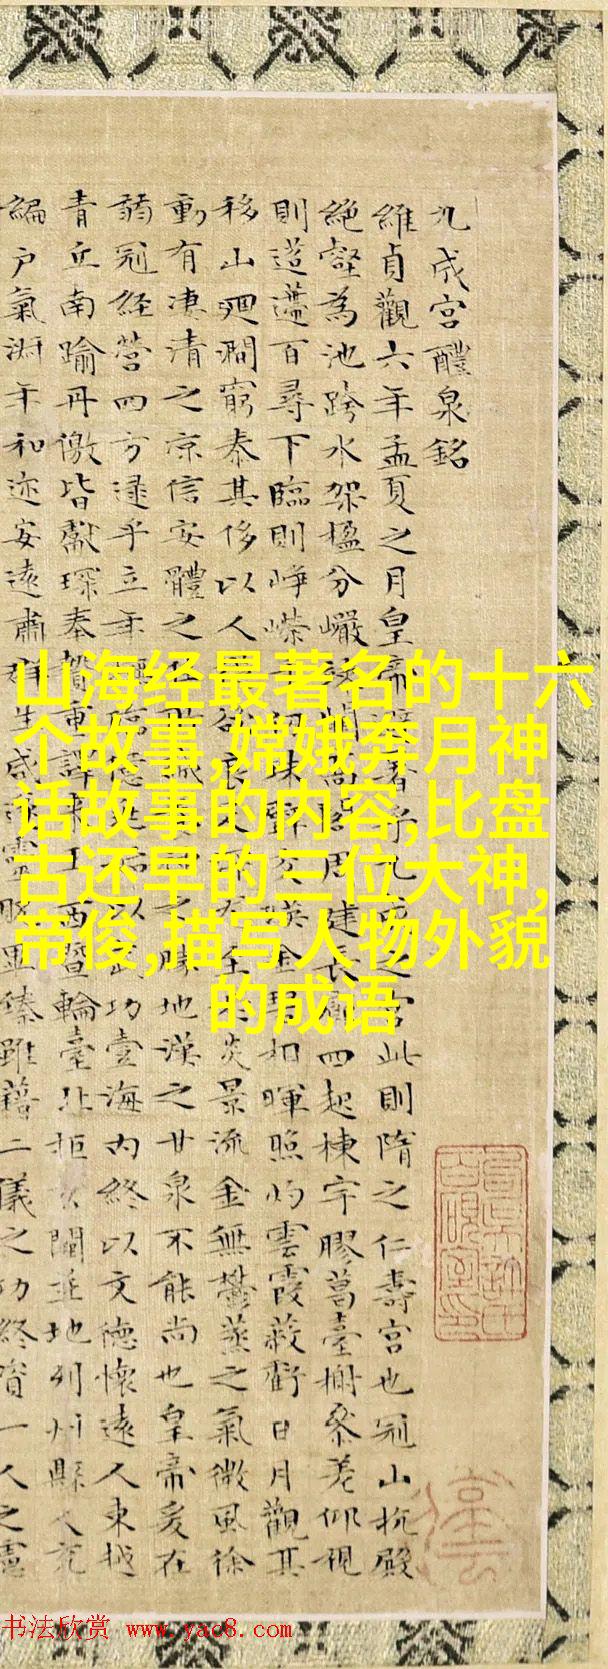 九成宮醴泉銘
維貞觀六年孟夏之月皇帝避暑乎九成之宮此則隋之仁壽宮也冠山抗殿
絕壑為池跨水架楹分巖
建長廊四起棟宇膠葛臺榭參差仰視
則迢遰百尋下臨則崢嶸
金碧相暉照灼雲霞蔽虧日月觀其
移山迴澗窮泰極侈以人
炎景流金無鬱蒸之氣微風徐
動有凄清之涼信安體之
勝地漢之甘泉不能尚也皇帝爰在
弱冠經營四方逮乎立年
武功壹海內終以文德懷遠人東越
青丘南踰丹徼皆獻琛奉贄重譯來王西暨輪臺北拒玄闕並地列州縣人充
編戶氣淑年和迩安遠肅群生咸
雖藉二儀之功終資一人之靈
山海经最著名的十六
个故事,嫦娥奔月神
话故事的内容,比盘
古还早的三位大神,
帝俊,描写人物外貌
的成语
书法欣赏 www.yac8.com